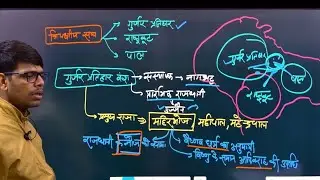 त्रिपक्षीय संघर्ष
गुर्जर प्रतिहार
राष्ट्रकूट
पाल
गुर्जर प्रतिहार वंश
संस्थापक → नागभट्ट
प्रारंभिक राजधानी
उज्जैन
प्रमुख राजा → मिहिरभोज, महीपाल, महेन्द्रपाल
राजधानी कन्नौज
वैष्णव धर्म का अनुयायी
विष्णु के सम्मान आदिवराह की उपाधि
गुर्जर प्रतिहार
पाल
राष्ट्रकूट